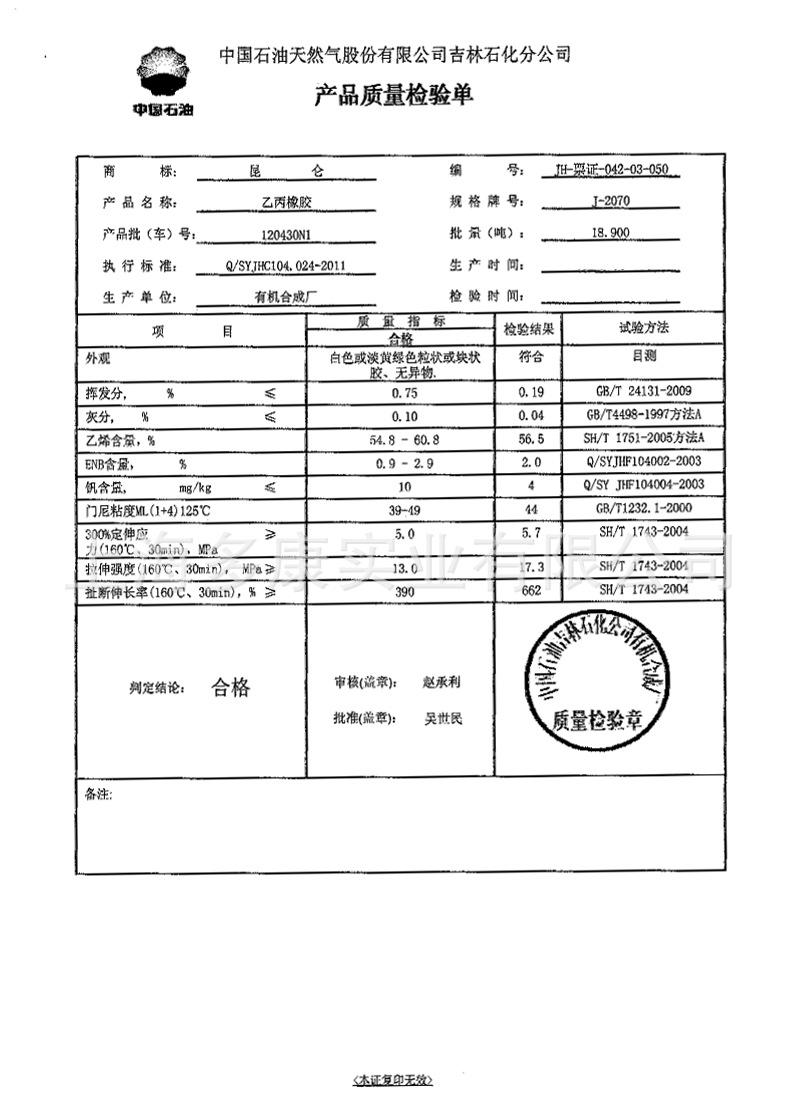 中国石油天然气股份有限公司吉林石化分公司
中国石油
产品质量检验单
商标： 昆仑 编号： JH-票证-042-03-050
产品名称： 乙丙橡胶 规格牌号： J-2070
产品批（车）号： 120430N1 批量（吨）： 18.900
执行标准： Q/SYJHC104.024-2011 生产时间：
生产单位： 有机合成厂 检验时间：
项目 质量指标 检验结果 试验方法
合格
外观 白色或淡黄绿色粒状或块状胶、无异物. 符合 目测
挥发分， % ≤ 0.75 0.19 GB/T 24131-2009
灰分， % ≤ 0.10 0.04 GB/T4498-1997方法A
乙烯含量，% 54.8 - 60.8 56.5 SH/T 1751-2005方法A
ENB含量， % 0.9 - 2.9 2.0 Q/SYJHF104002-2003
钒含量, mg/kg ≤ 10 4 Q/SY JHF104004-2003
门尼粘度ML(1+4)125℃ 39-49 44 GB/T1232.1-2000
300%定伸应力(160℃、30min)，MPa ≥ 5.0 5.7 SH/T 1743-2004
拉伸强度(160℃、30min)， MPa ≥ 13.0 17.3 SH/T 1743-2004
扯断伸长率(160℃、30min)，% ≥ 390 662 SH/T 1743-2004
上海多康实业有限公司
判定结论： 合格
审核(盖章)： 赵承利
批准(盖章)： 吴世民
中国石油吉林石化公司有机合成厂
质量检验章
备注:
<本证复印无效>